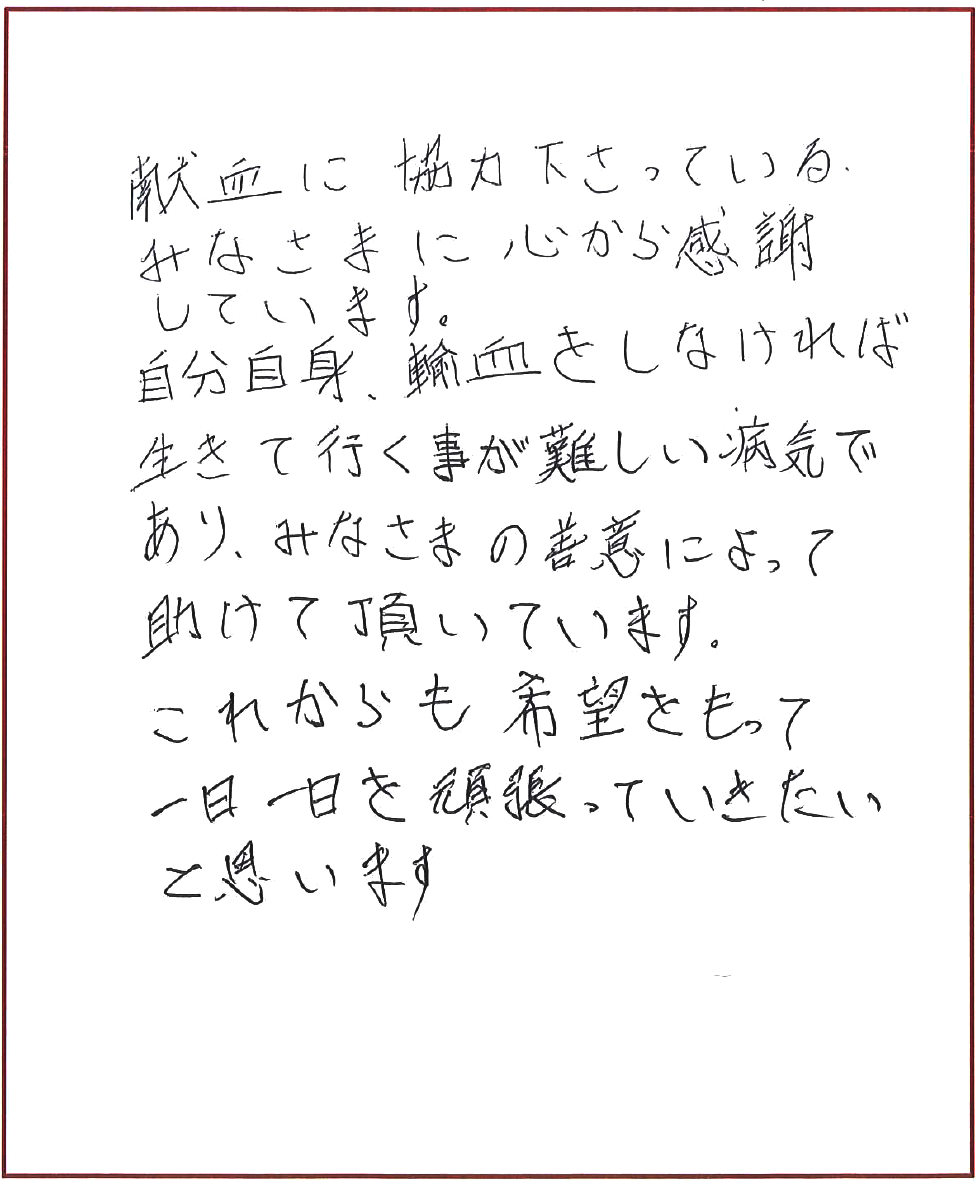 献血に協力下さっている
みなさまに心から感謝
しています。
自分自身、輸血をしなければ
生きて行く事が難しい病気で
あり、みなさまの善意によって
助けて頂いています。
これからも希望をもって
一日一日を頑張っていきたい
と思います